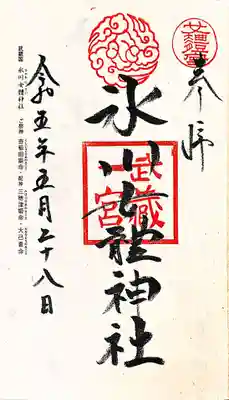 奉拝
武蔵一宮
氷川女體神社
令和五年五月二十八日
武蔵国 氷川女體神社 ご祭神 奇稲田姫命・配神 三穂津姫命・大己貴命